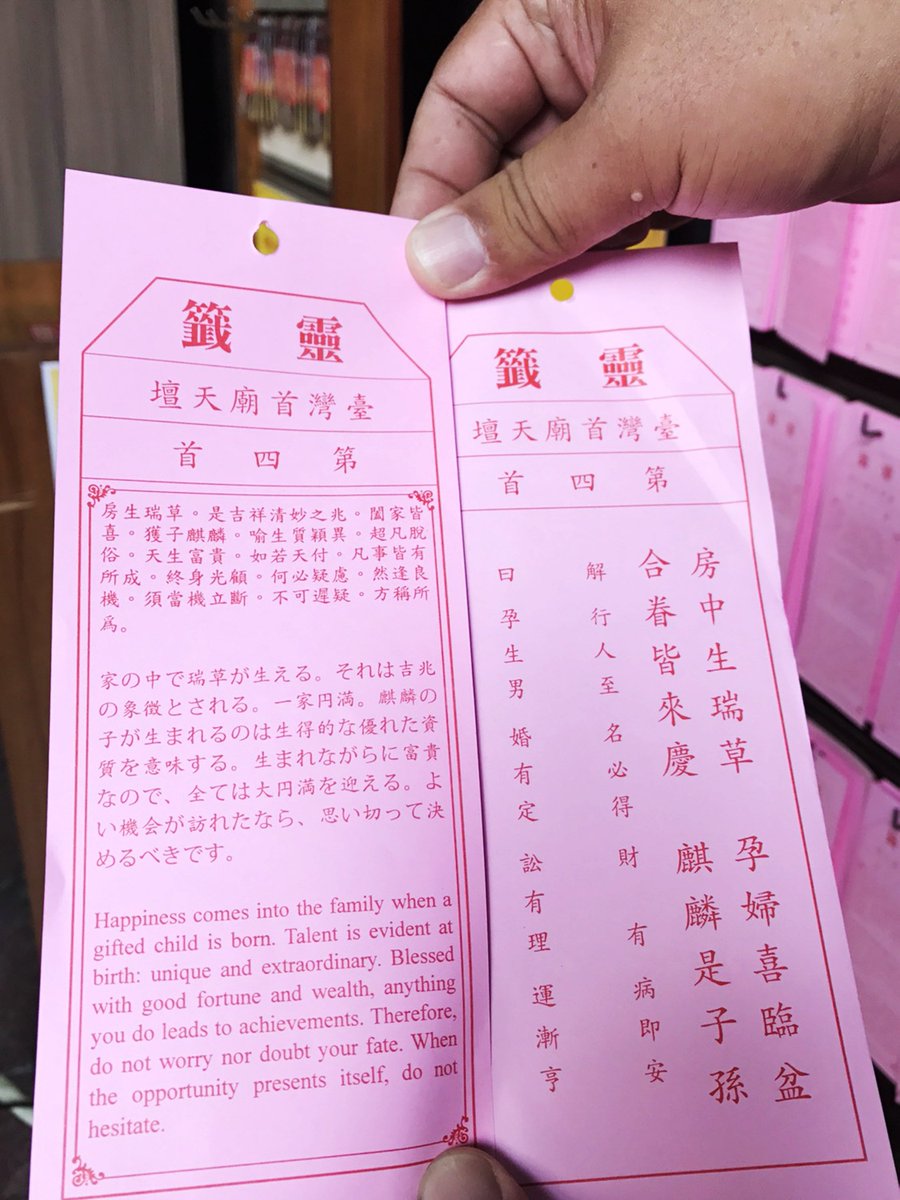 靈籤
臺灣首廟天壇
第四首
房生瑞草。是吉祥清妙之兆。闔家皆
喜。獲子麒麟。喻生質穎異。超凡脫
俗。天生富貴。如若天付。凡事皆有
所成。終身光顧。何必疑慮。然逢良
機。須當機立斷。不可遲疑。方稱所
為。
家の中で瑞草が生える。それは吉兆
の象徴とされる。一家円満。麒麟の
子が生まれるのは生得的な優れた資
質を意味する。生まれながらに富貴
なので、全ては大円満を迎える。よ
い機会が訪れたなら、思い切って決
めるべきです。
Happiness comes into the family when a
gifted child is born. Talent is evident at
birth: unique and extraordinary. Blessed
with good fortune and wealth, anything
you do leads to achievements. Therefore,
do not worry nor doubt your fate. When
the opportunity presents itself, do not
hesitate.
靈籤
臺灣首廟天壇
第四首
房中生瑞草 孕婦喜臨盆
合眷皆來慶 麒麟是子孫
解 行人至 名必得 財有 病即安
曰 孕生男 婚有定 訟有理 運漸亨